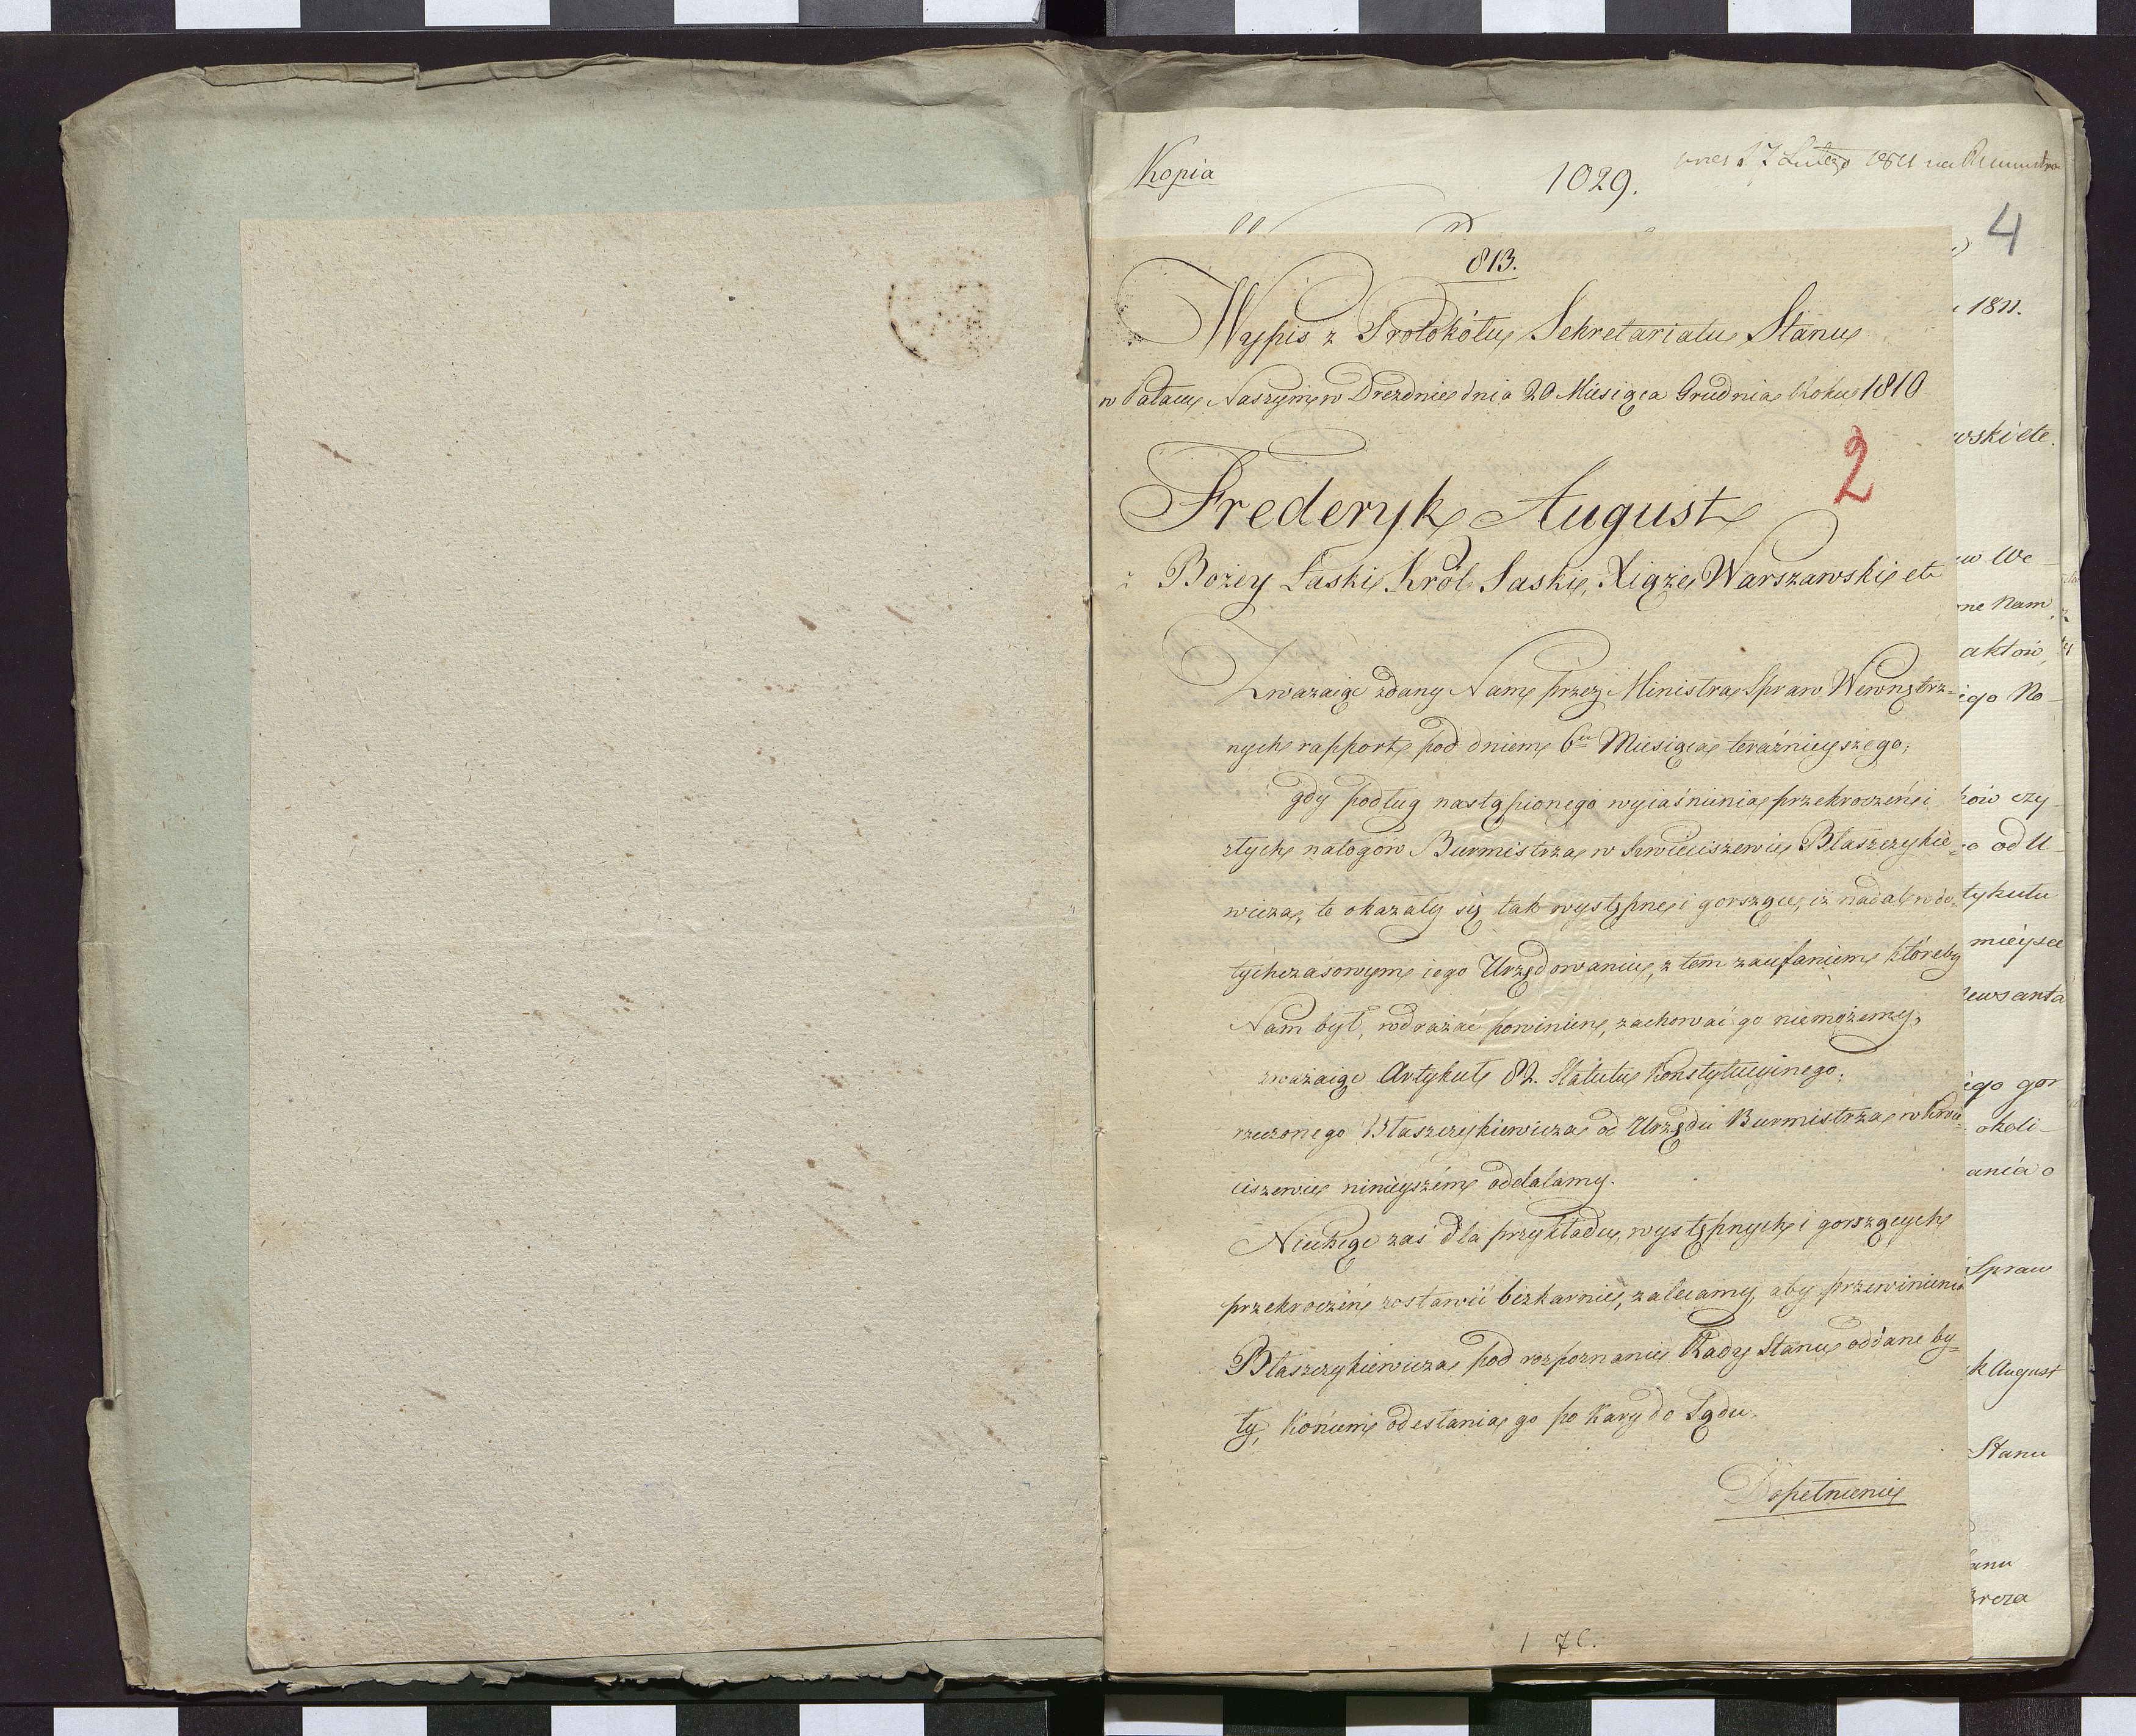 Kopia
1029.
17 Lutego 1811 na
4
813.
Wypis z Protokółu Sekretariatu Stanu
w Pałacu Naszym w Dreznie dnia 20 Miesiąca Grudnia Roku 1810
2
Frederyk August
z Bożey Łaski Król Saski, Xiąże Warszawski etc
Zważaiąc zdany Nam przez Ministra Spraw Wewnętrz=
nych rapport pod dniem 6go Miesiąca teraźnieyszego;
gdy podług nastąpionego wyiaśnienia przekroczeń i
złych nałogów Burmistrza w Kwieciszewie Błaszczykie=
wicza, te okazały się tak występne i gorszące, iż nadal w do=
tychczasowym iego Urzędowaniu, z tem zaufaniem któreby
Nam był, wdrażać powinien, zachować go niemożemy;
zważaiąc Artykuł 82. Statutu Konstytucyinego;
rzeczonego Błaszczykiewicza od Urzędu Burmistrza w Kwie=
ciszewie ninieyszém oddalamy.
Niechcąc zaś dla przykładu, występnych i gorszących
przekroczeń zostawić bezkarnie, zalecamy, aby przewinienia
Błaszczykiewicza pod rozpoznanie Rady Stanu oddane by=
ły, końcem odesłania go po karę do Sądu.
Dopełnienie
1811.
wski etc.
w We
ne Nam
aktów,
igo No
ków czy
o od U
tykułu
mieysce
ego gor
okoli
ania o
Spraw
k August
Stanu
anu
Breza